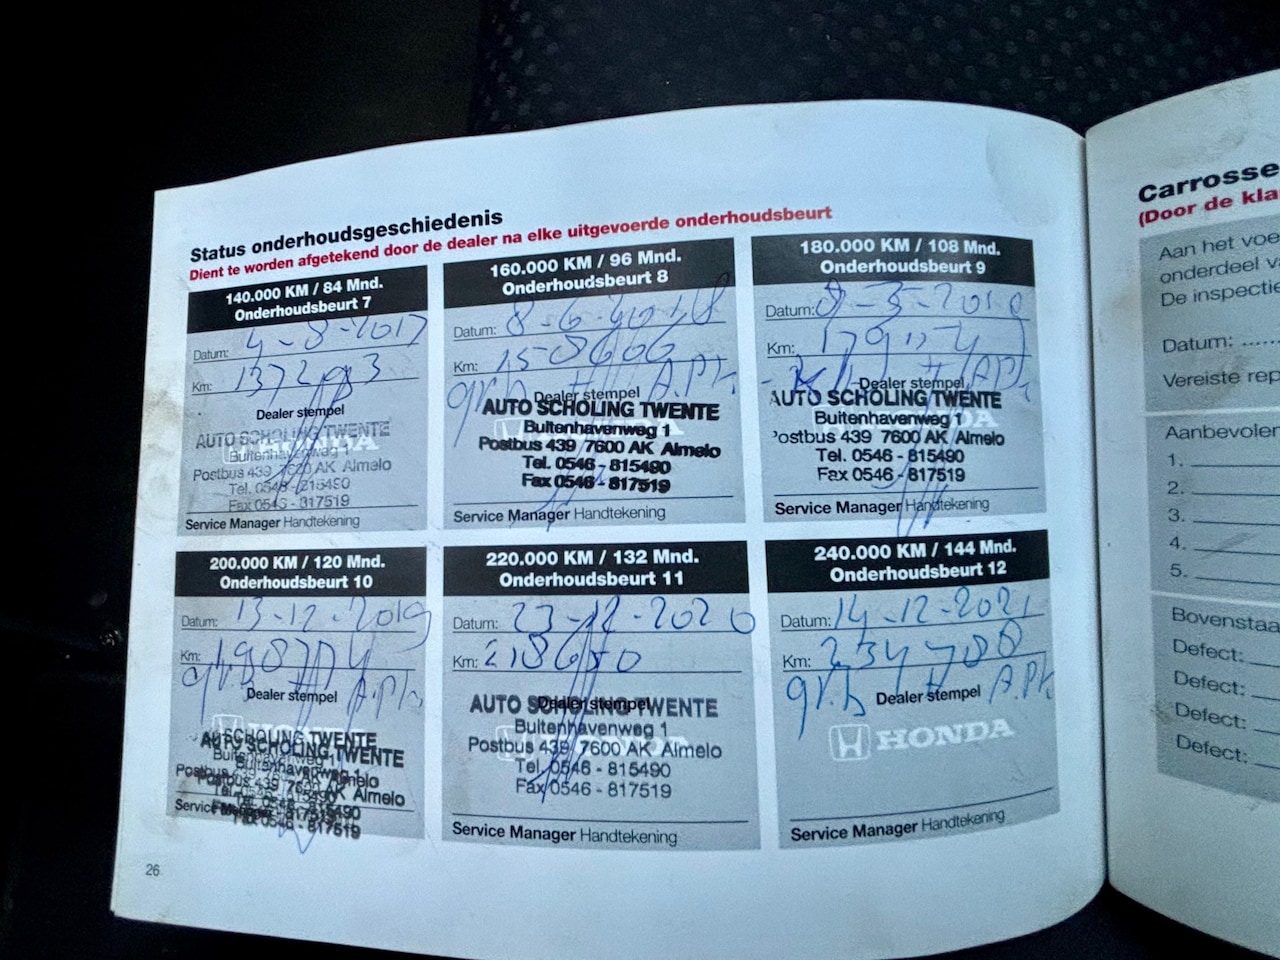 Status onderhoudsgeschiedenis
Dient te worden afgetekend door de dealer na elke uitgevoerde onderhoudsbeurt
140.000 KM / 84 Mnd.
Onderhoudsbeurt 7
Datum: 4-8-2017
Km:
Dealer stempel
HONDA
AUTO SCHOLING TWENTE
Buitenhavenweg 1
Postbus 439 7600 AK Almelo
Tel. 0546 - 815490
Fax 0546 - 817519
Service Manager Handtekening
160.000 KM / 96 Mnd.
Onderhoudsbeurt 8
Datum: 8-6-2018
Km: 158606
gr.b A.Ph.
Dealer stempel
AUTO SCHOLING TWENTE
Buitenhavenweg 1
Postbus 439 7600 AK Almelo
Tel. 0546 - 815490
Fax 0546 - 817519
Service Manager Handtekening
180.000 KM / 108 Mnd.
Onderhoudsbeurt 9
Datum:
Km:
Dealer stempel
AUTO SCHOLING TWENTE
Buitenhavenweg 1
Postbus 439 7600 AK Almelo
Tel. 0546 - 815490
Fax 0546 - 817519
Service Manager Handtekening
200.000 KM / 120 Mnd.
Onderhoudsbeurt 10
Datum: 13-12-2019
Km:
gr.b A.Ph.
Dealer stempel
HONDA
AUTO SCHOLING TWENTE
Buitenhavenweg 1
Postbus 439 7600 AK Almelo
Tel. 0546 - 815490
Fax 0546 - 817519
Service Manager
220.000 KM / 132 Mnd.
Onderhoudsbeurt 11
Datum: 23-12-2020
Km: 218650
Dealer stempel
AUTO SCHOLING TWENTE
Buitenhavenweg 1
Postbus 439 7600 AK Almelo
Tel. 0546 - 815490
Fax 0546 - 817519
Service Manager Handtekening
240.000 KM / 144 Mnd.
Onderhoudsbeurt 12
Datum: 14-12-2021
Km: 234788
gr.b A.Ph
Dealer stempel
HONDA
Service Manager Handtekening
26
Carrosse
(Door de kla
Aan het voe
onderdeel va
De inspectie
Datum: ......
Vereiste rep
Aanbevolen
1.
2.
3.
4.
5.
Bovenstaa
Defect:
Defect:
Defect:
Defect: